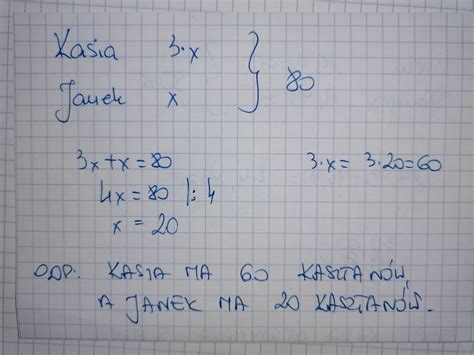 Kasia 3·x
Janek x } 80
3x+x=80 3·x= 3·20=60
4x=80 |:4
x = 20
ODP: KASIA MA 60 KASZTANÓW,
A JANEK MA 20 KASZTANÓW.